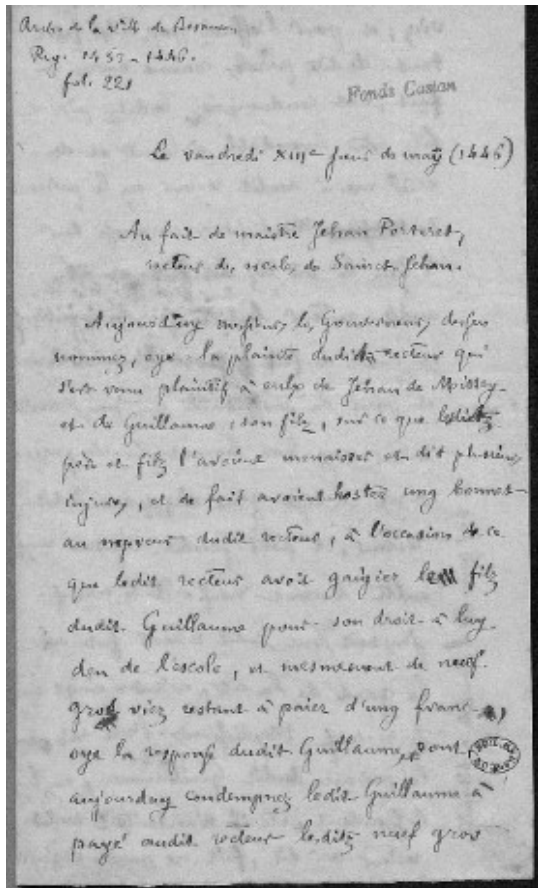 Archs de la ville de Besançon
Reg. 1453-1446.
fol. 221
Fonds Castan
Le vandredi XIIIe jour de may (1446)
Au fait de maistre Jehan Porteret,
recteur des escoles de Sainct Jehan.
Aujourd'uy messieurs les Gouverneurs dessus
nommez, oye la plainte dudit recteur qui
s'est venu plaintif à eulx de Jehan de Moissey
et de Guillaume, son filz, sur ce que lesdictz
père et filz l'avoient menaissez et dit plusieurs
injures, et de fait avoient hostez ung bonnet
au nepveur dudit recteur, à l'occasion de ce
que ledit recteur avoit gaigier le filz
dudit Guillaume pour son droit à luy
deu de l'escole, et mesmement de neuf
gros viez restant à paier d'ung franc,
oye la response dudit Guillaume, sont
aujourduy condempnez ledit Guillaume à
payé audit recteur lesditz neuf gros